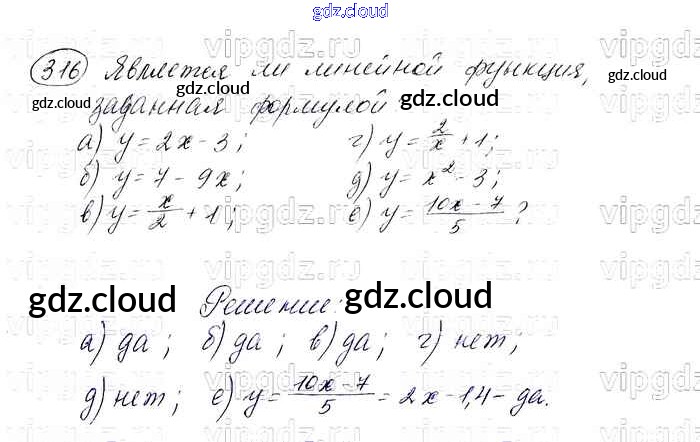 gdz.cloud
316 Является ли линейной функция,
заданная формулой
а) y = 2x - 3; г) y = 2/x + 1;
б) y = 7 - 9x; д) y = x² - 3;
в) y = x/2 + 1; е) y = (10x - 7)/5 ?
Решение:
а) да; б) да; в) да; г) нет;
д) нет; е) y = (10x - 7)/5 = 2x - 1,4 - да.
gdz.cloud
gdz.cloud
gdz.cloud
gdz.cloud
vipgdz.ru